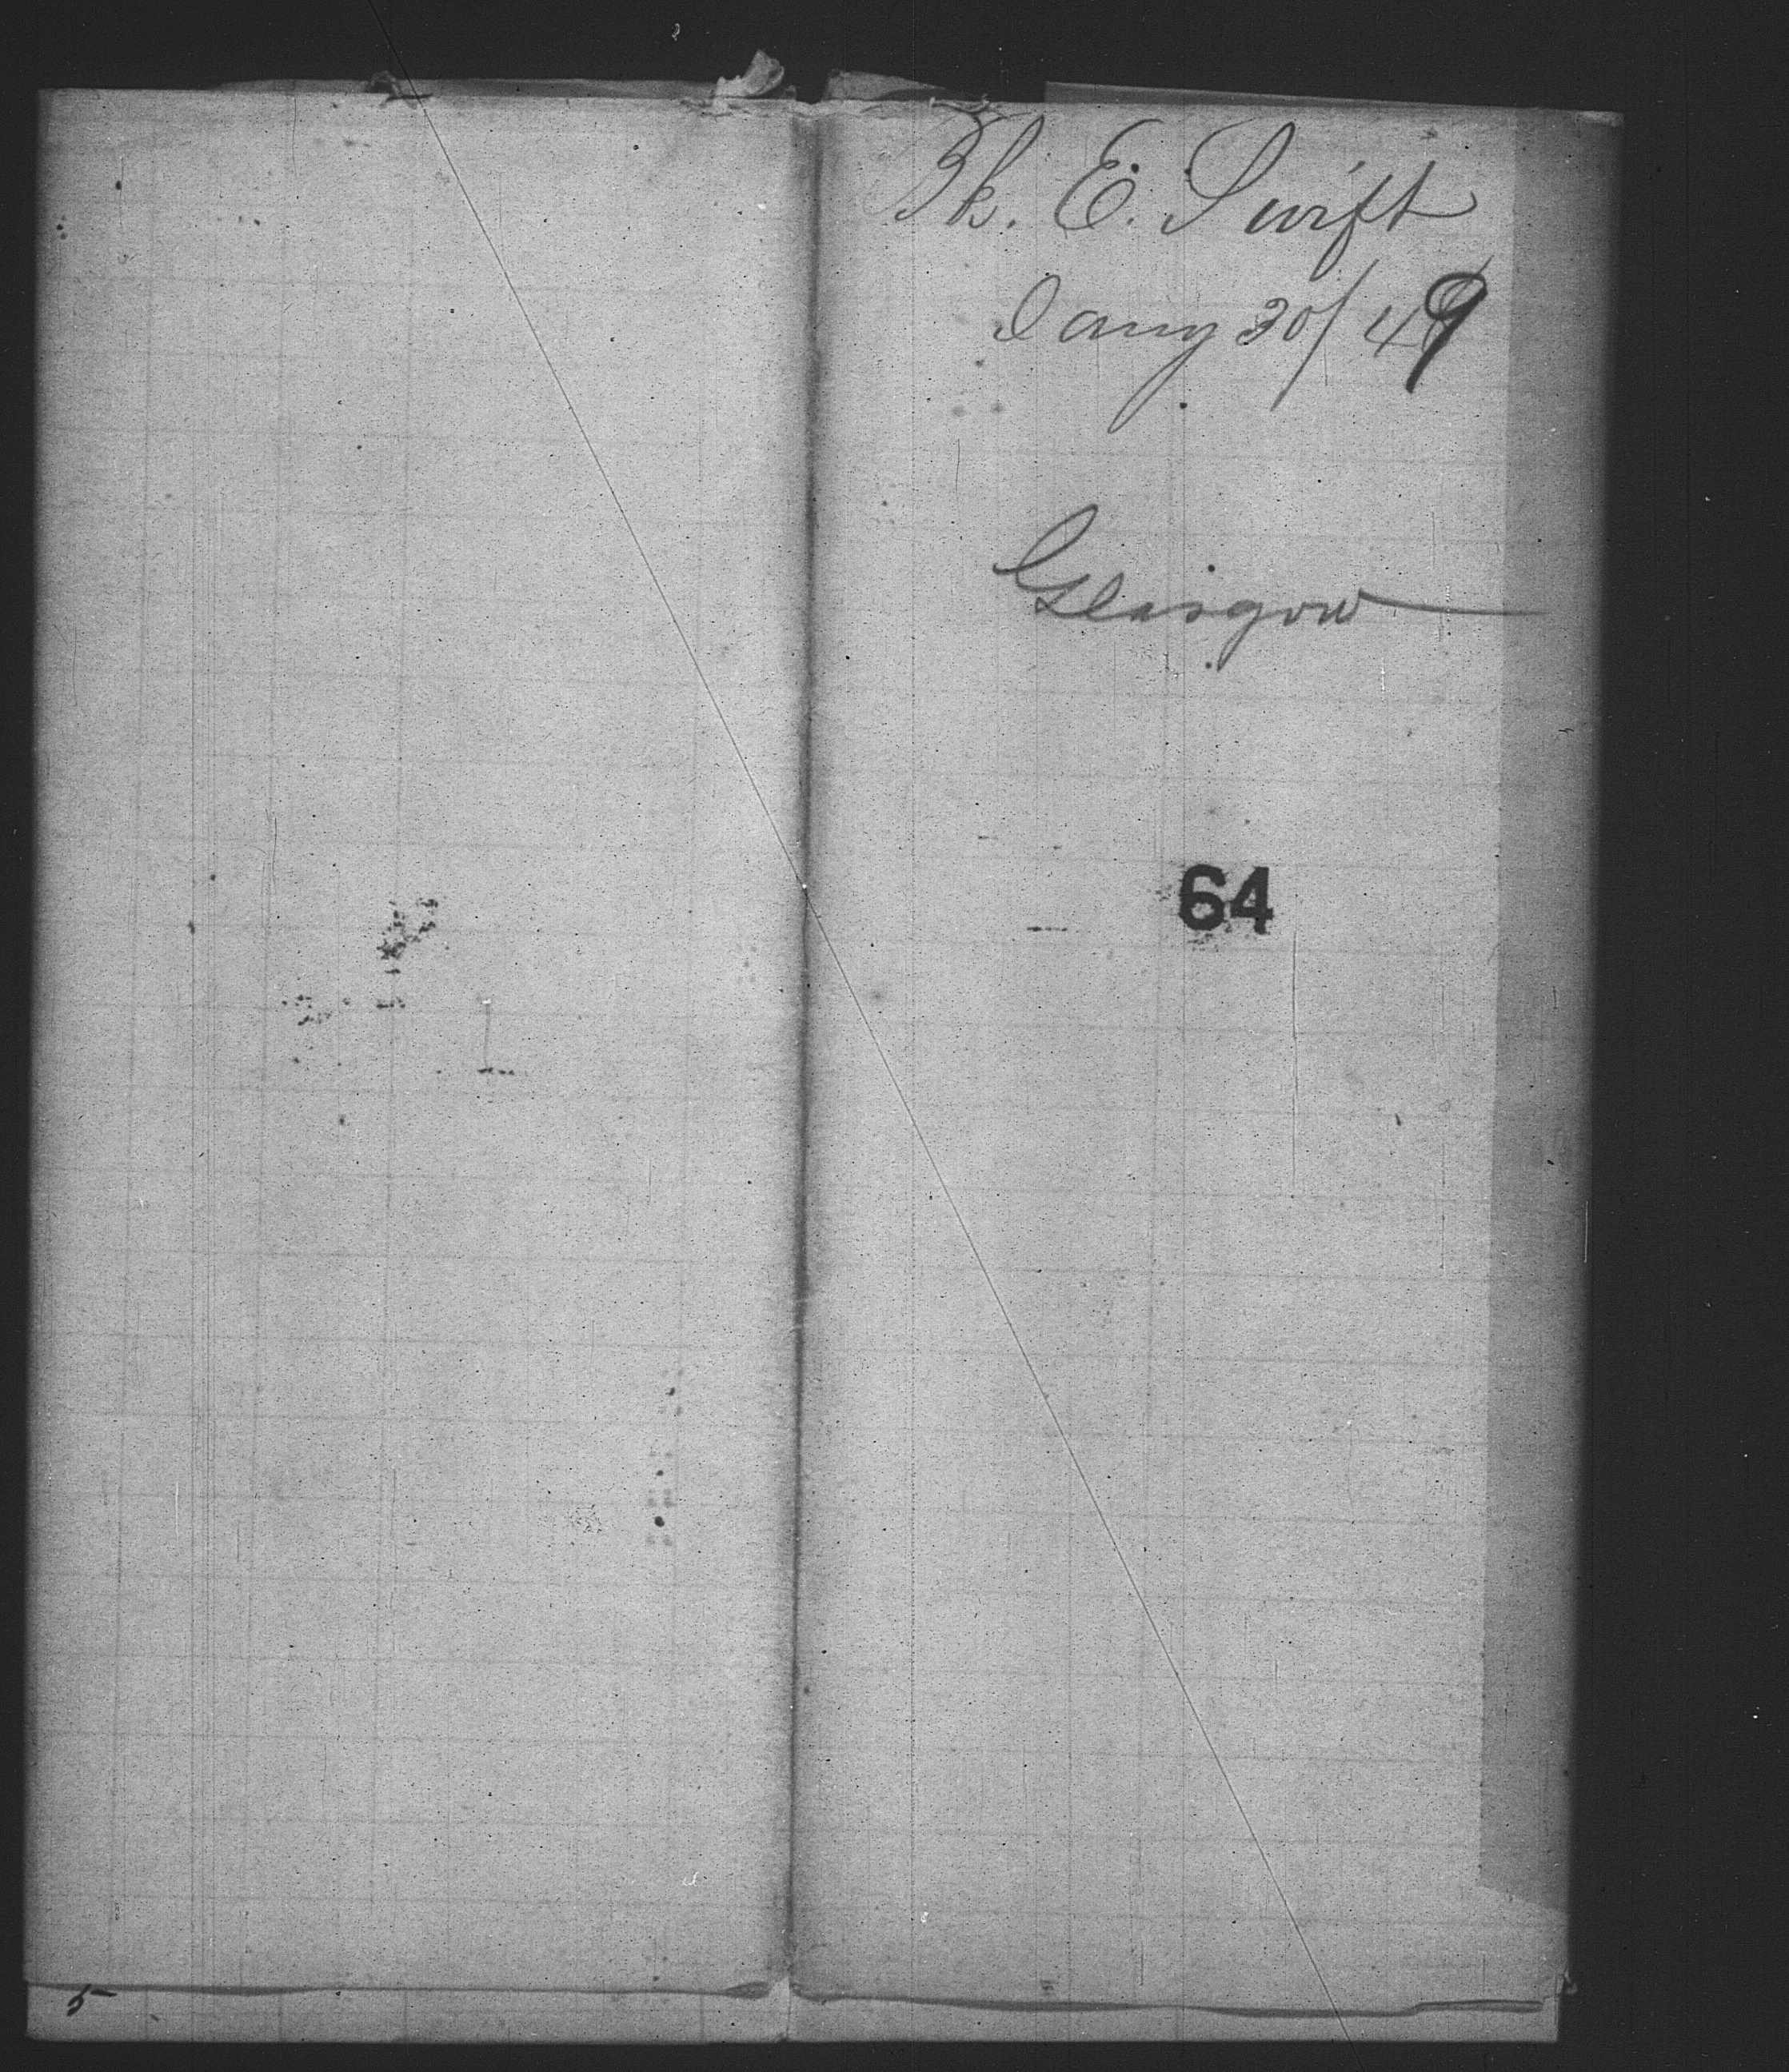 Bk. E. Swift
Jany 30/49
Glasgow
64
5